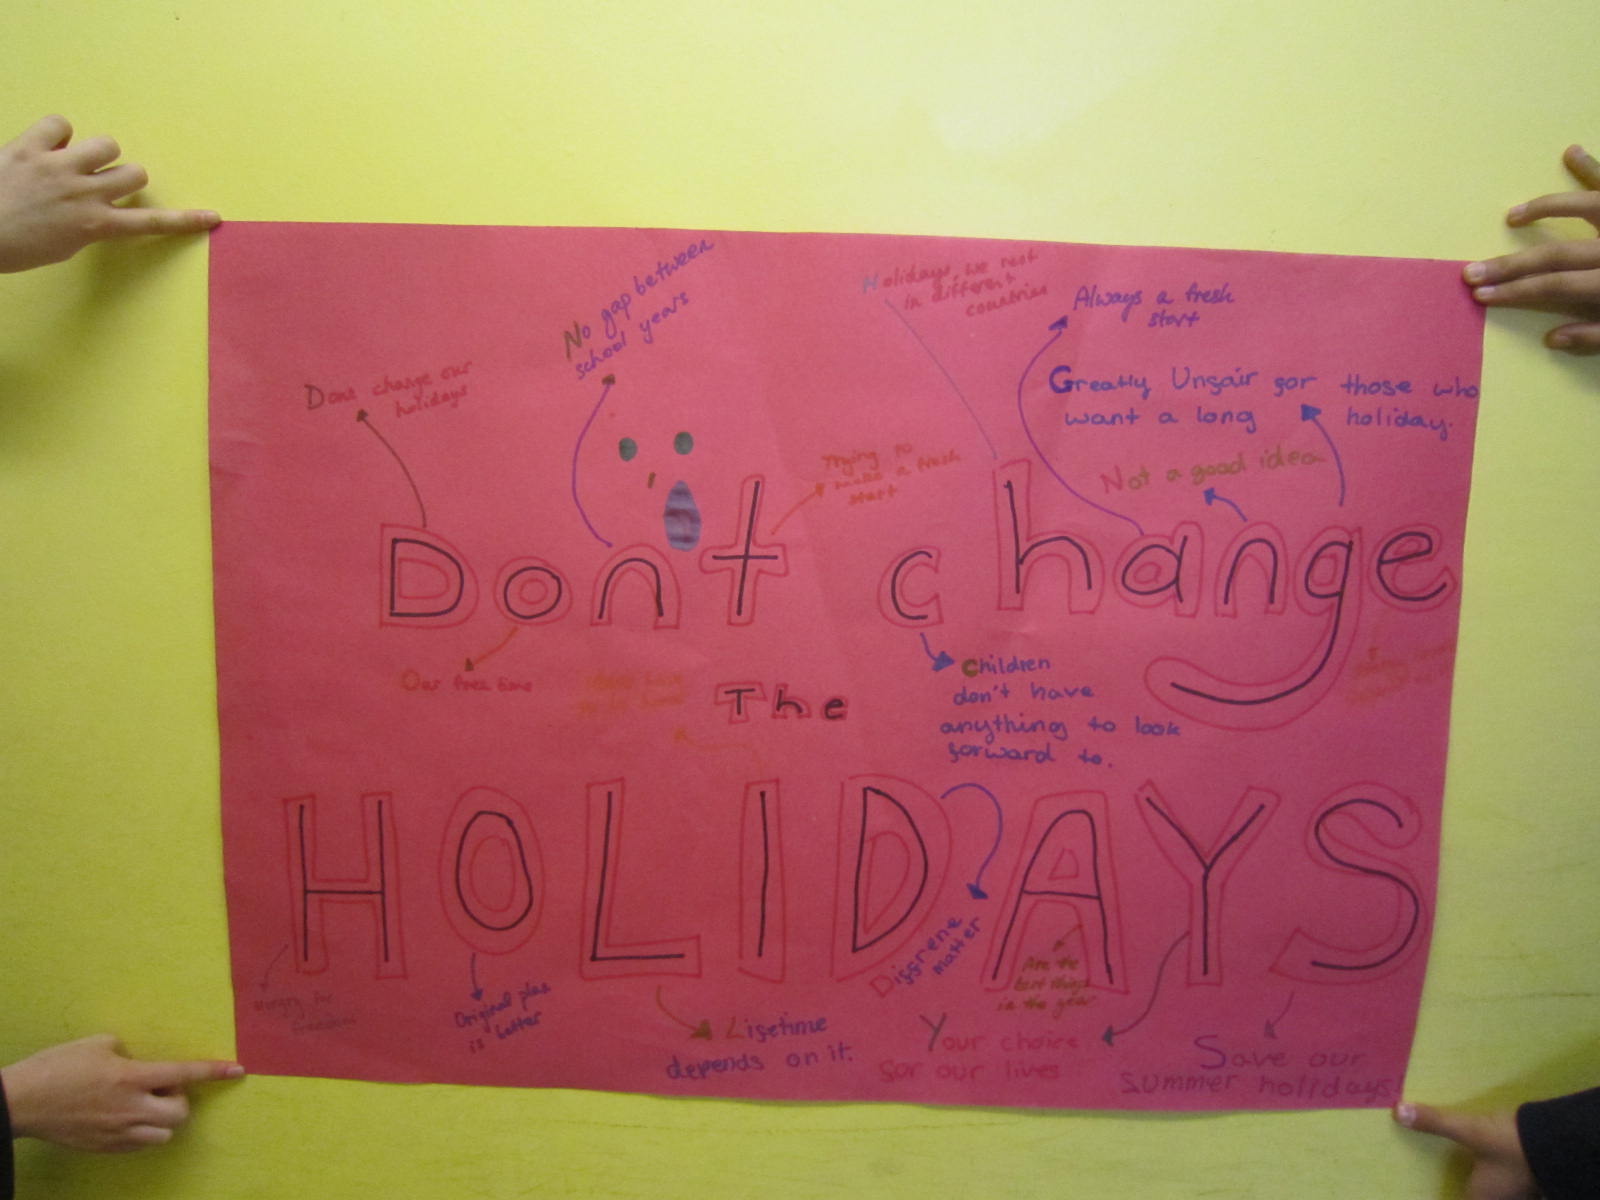 No gap between
school years
Holidays, we rest
in different
countries
Always a fresh
start
Dont change our
holidays
Greatly Unfair for those who
want a long holiday.
Trying to
make a fresh
start
Not a good idea
Don't change
Our free time
The
Children
don't have
anything to look
forward to.
HOLIDAYS
Hungry for
freedom
Original plan
is better
Lifetime
depends on it.
Diffrene
matter
Are the
best things
in the year
Your choice
for our lives
Save our
summer holidays!